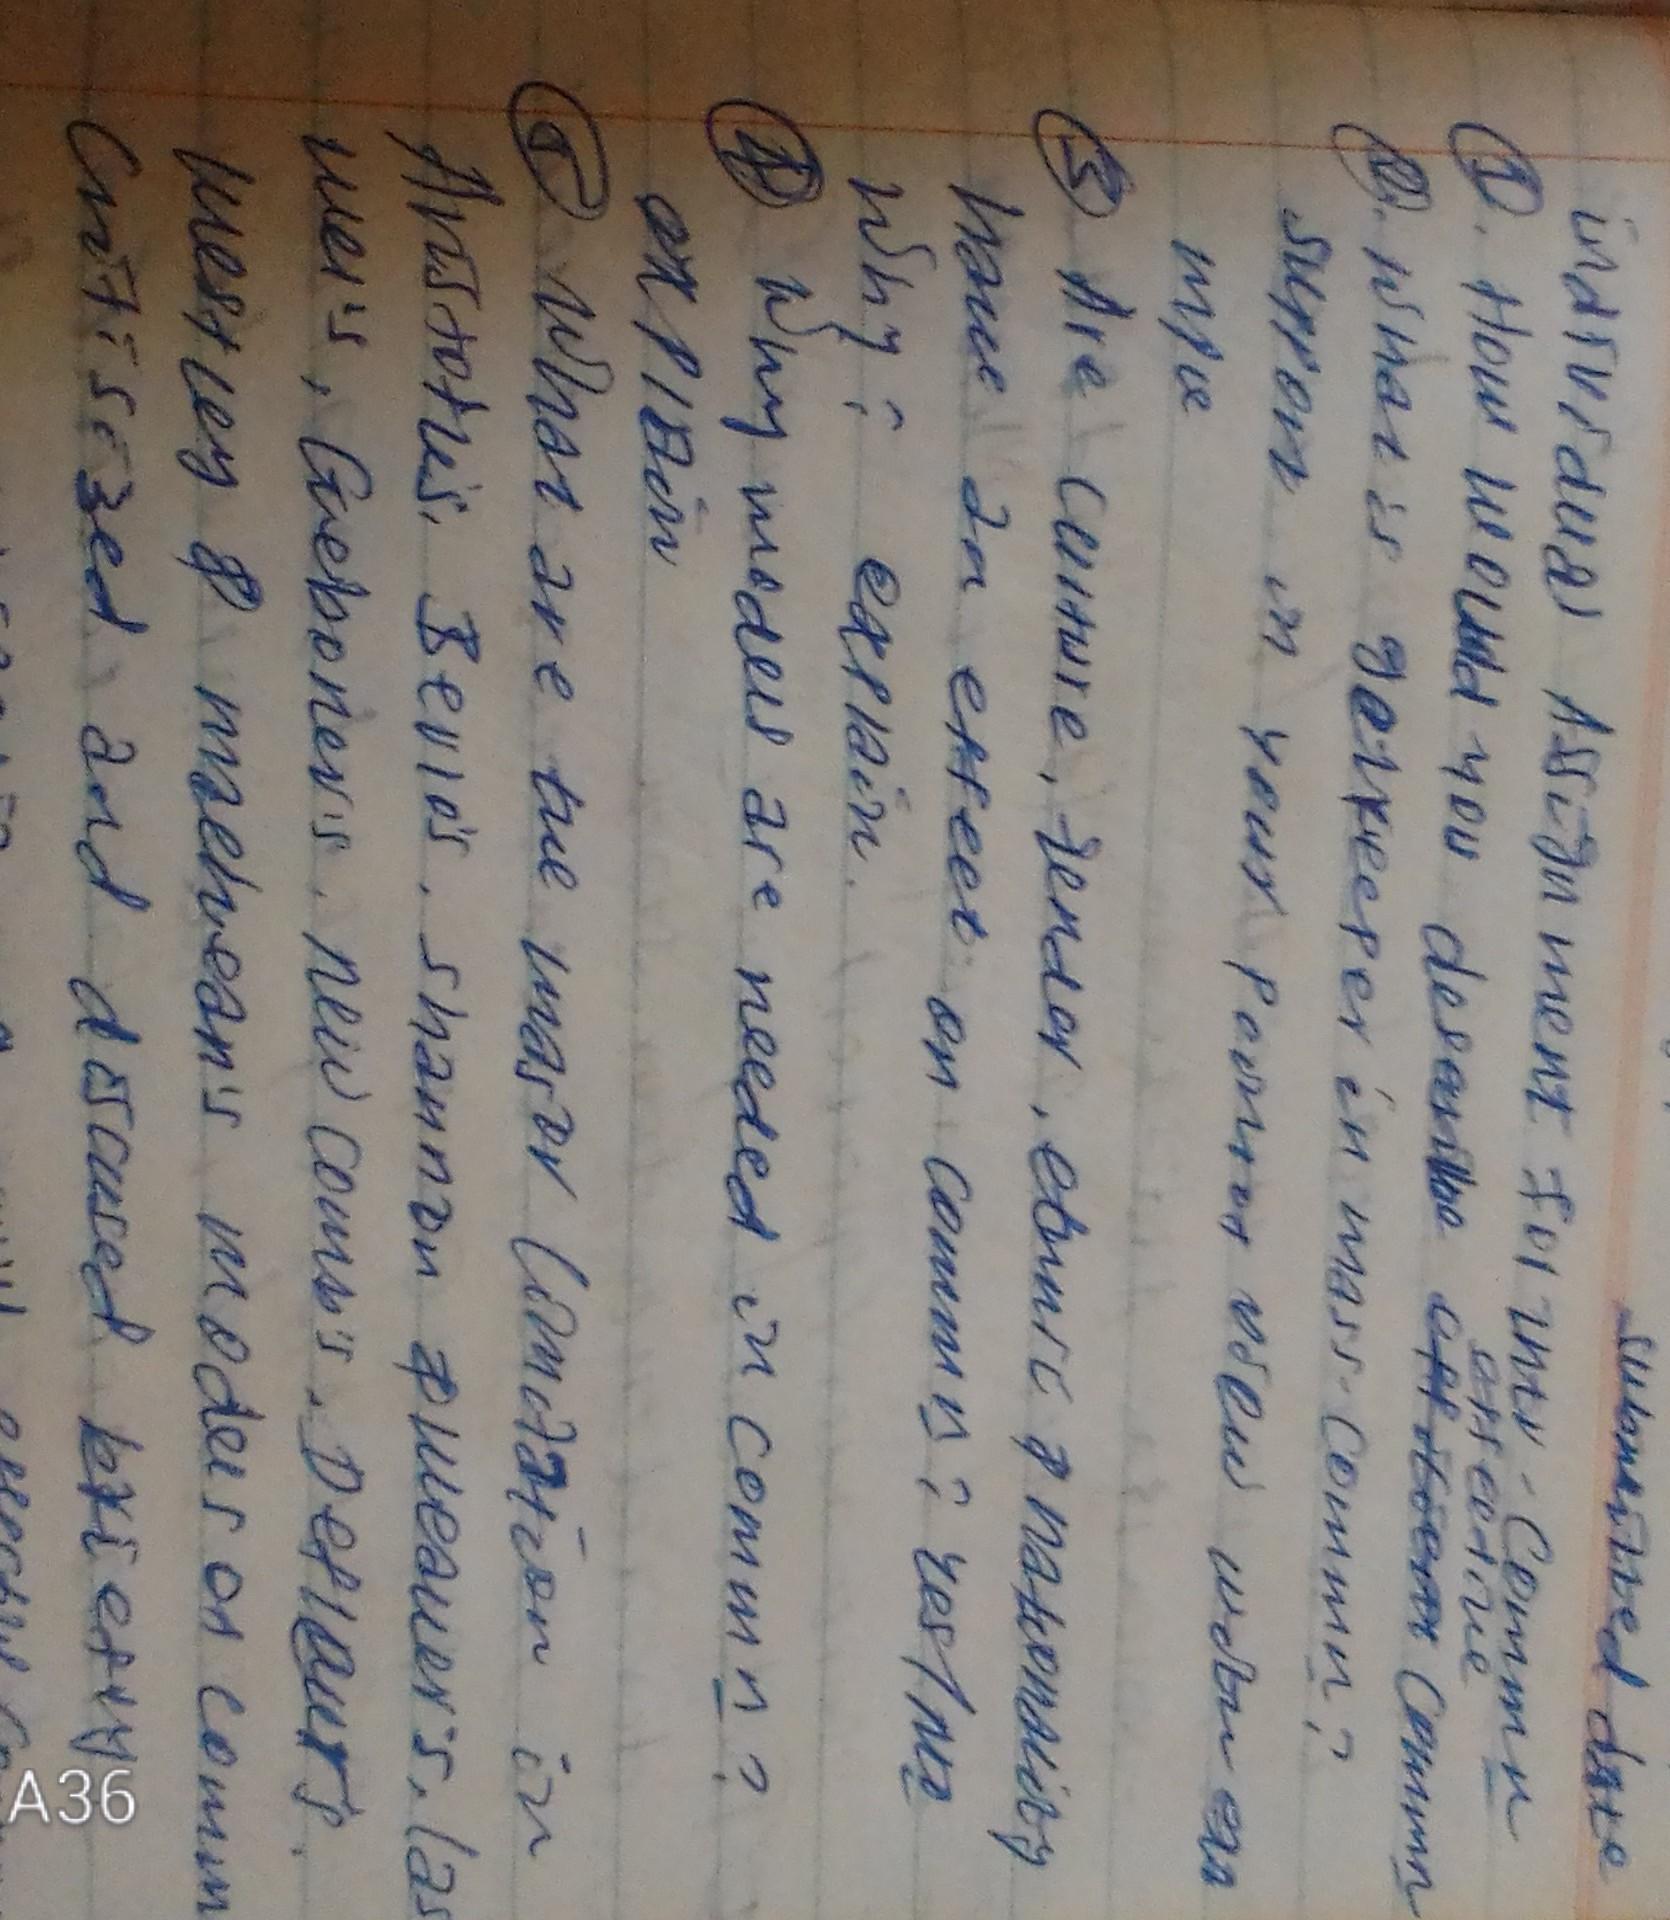 submitted date
individual Assignment for intr. Commn
1. How would you describe effective Commn
2. What is gatekeeper in mass-commn?
support in your point of view with an
mple
3 Are culture, gender, ethnic & nationality
have an effect on commn? Yes/no
Why? explain.
4 Why models are needed in commn?
explain
5 What are the major limitation in
Aristotle's, Berlo's, Shannon & weaver's, las
wel's, Gerboner's, New comb's, Defluer's,
westley & maclean's models of commn
Critisized and discussed briefly
A36